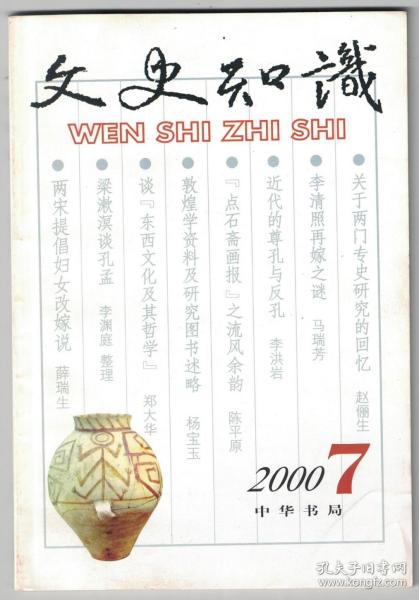 文史知識
WEN SHI ZHI SHI
关于两门专史研究的回忆 赵俪生
李清照再嫁之谜 马瑞芳
近代的尊孔与反孔 李洪岩
『点石斋画报』之流风余韵 陈平原
敦煌学资料及研究图书述略 杨宝玉
谈『东西文化及其哲学』 郑大华
梁漱溟谈孔孟 李渊庭 整理
两宋提倡妇女改嫁说 薛瑞生
2000 7
中华书局
孔夫子旧书网
www.kongfz.com